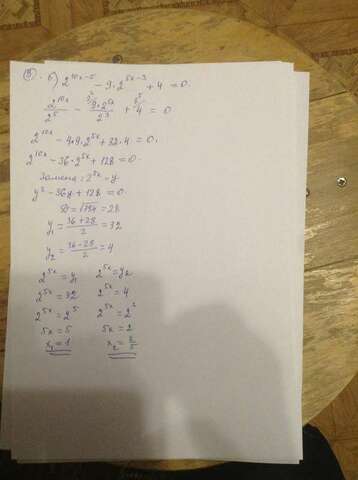 ③ б) 2^{10x-5} - 9·2^{5x-3} + 4 = 0.
2^{10x}/2^5 - 9·2^{5x}/2^3 + 4 = 0
2^{10x} - 4·9·2^{5x} + 32·4 = 0.
2^{10x} - 36·2^{5x} + 128 = 0.
Замена: 2^{5x} = y
y² - 36y + 128 = 0.
D = √784 = 28
y₁ = (36+28)/2 = 32
y₂ = (36-28)/2 = 4
2^{5x} = y₁ 2^{5x} = y₂
2^{5x} = 32 2^{5x} = 4
2^{5x} = 2^5 2^{5x} = 2²
5x = 5 5x = 2
x₁ = 1 x₂ = 2/5